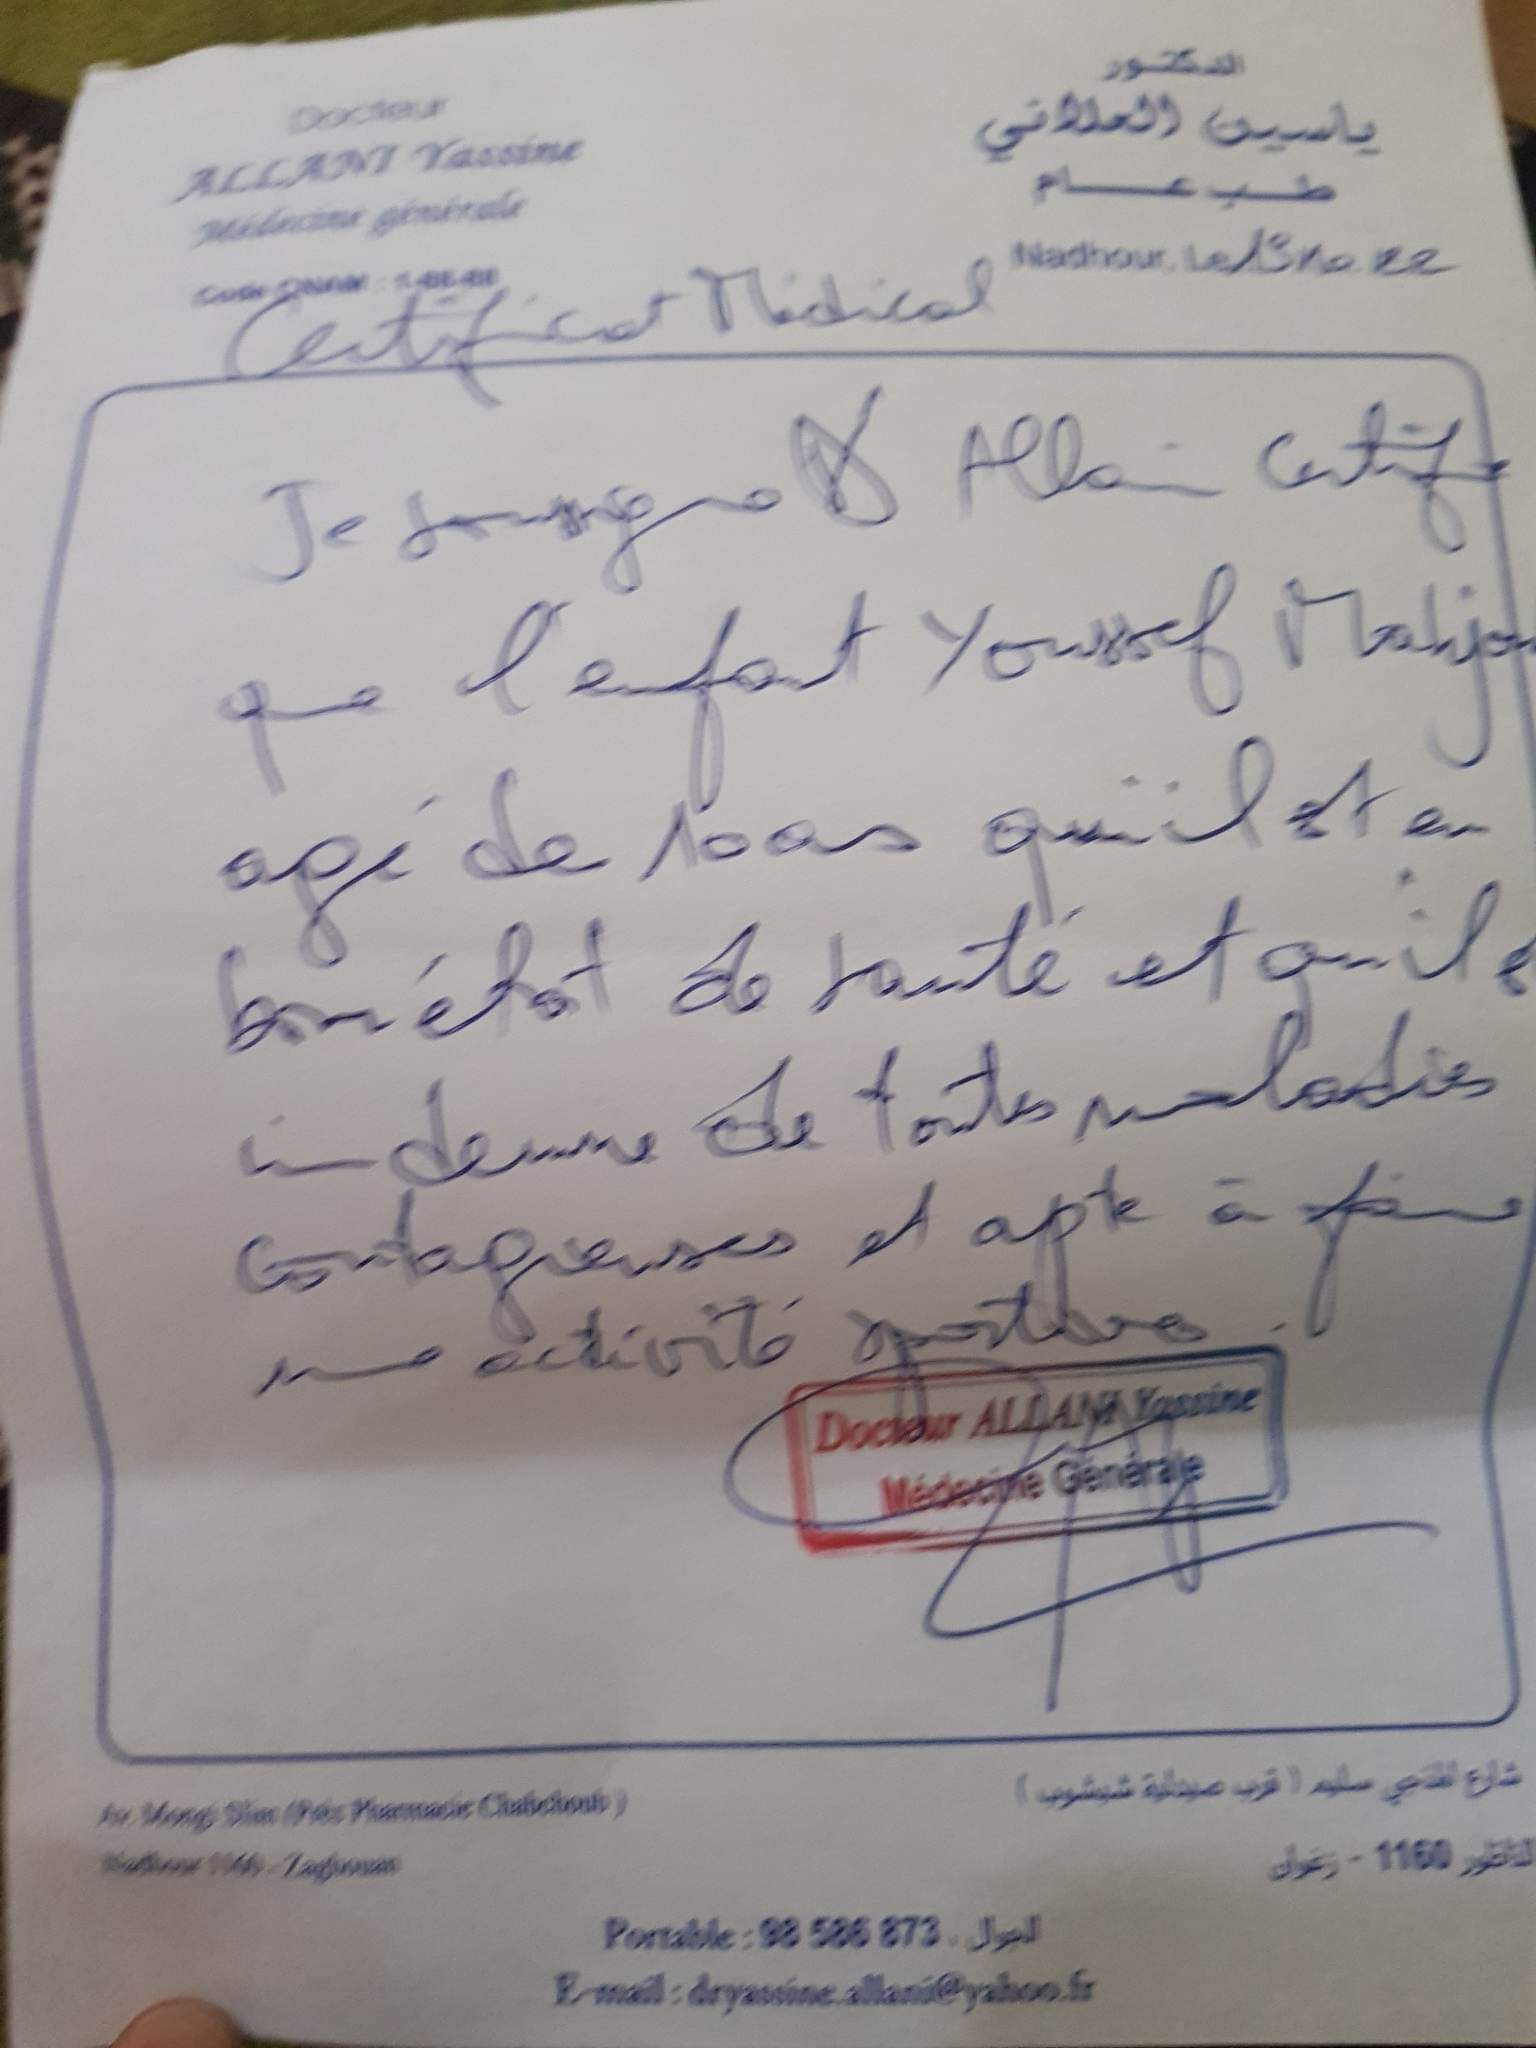 Docteur
ALLANI Yassine
Médecine générale
Code CNAM :
الدكتور
ياسين العلاني
طب عام
Nadhour, Le 13 10 22
Certificat Médical
Je soussigné Dr Allani Certifie
que l'enfant Youssef Mahjou
agé de 10 ans qu'il est en
bon état de santé et qu'il e
indemne de toutes maladies
contagieuses et apte à faire
une activité sportive.
Docteur ALLANI Yassine
Médecine Générale
Av. Mongi Slim (Près Pharmacie Chabchoub)
Nadhour 1160 - Zaghouan
شارع المنجي سليم ( قرب صيدلية شبشوب )
الناظور 1160 - زغوان
Portable : 98 586 873 : الجوال
E-mail : dryassine.allani@yahoo.fr